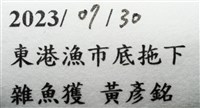 2023/07/30
東港漁市底拖下
雜魚獲 黃彥銘